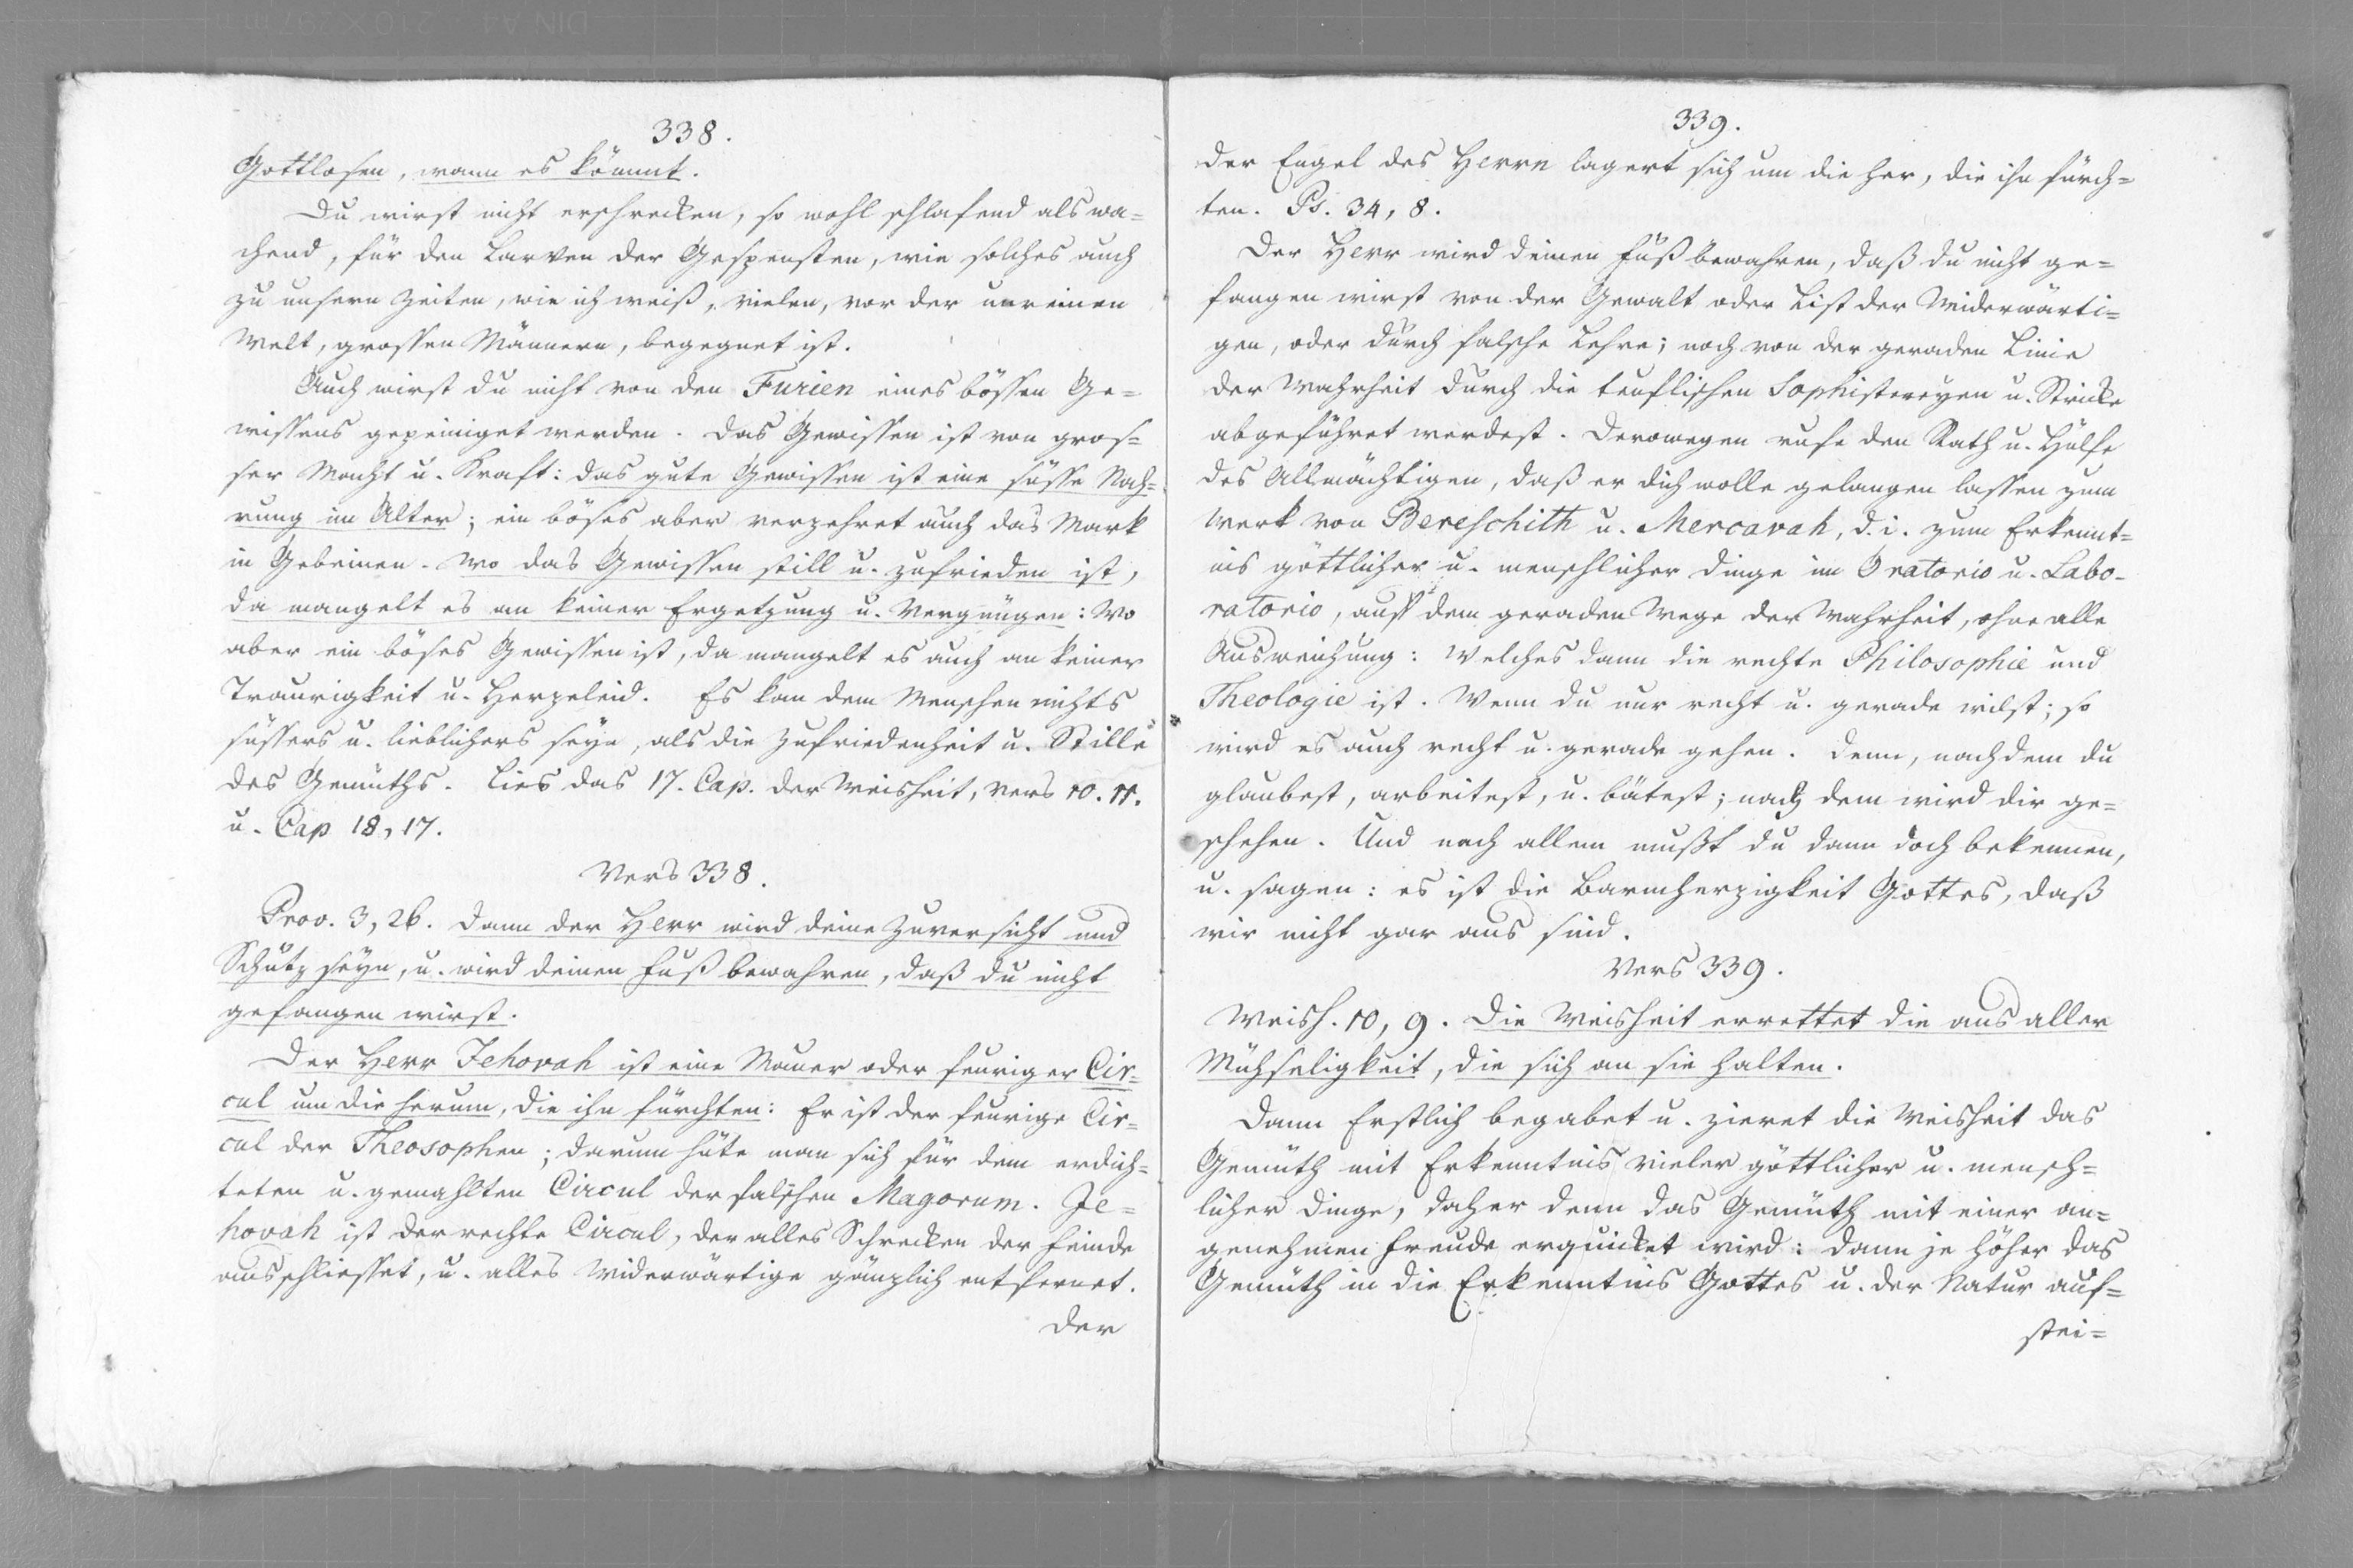 338.
Gottlosen, wann es kömmt.
Du wirst nicht erschrecken, so wohl schlafend als wa=
chend, für den Larven der Gespensten, wie solches auch
zu unsern Zeiten, wie ich weiß, vielen, vor der unreinen
Welt, grossen Männern, begegnet ist.
Auch wirst du nicht von den Furien eines bössen Ge=
wissens gepeiniget werden. Das Gewissen ist von gros=
ser Macht u. Kraft: das gute Gewissen ist eine süsse Nah=
rung im Alter; ein böses aber verzehret auch das Mark
in Gebeinen. Wo das Gewissen still u. zufrieden ist,
da mangelt es an keiner Ergetzung u. Vergnügen: Wo
aber ein böses Gewissen ist, da mangelt es auch an keiner
Traurigkeit u. Herzeleid. Es kan dem Menschen nichts
süssers u. lieblichers seyn, als die Zufriedenheit u. Stille
des Gemüths. Lies das 17. Cap. der Weisheit, Vers 10. 11.
u. Cap 18, 17.
Vers 338.
Prov. 3, 26. Dann der Herr wird deine Zuversicht und
Schutz seyn, u. wird deinen Fuß bewahren, daß du nicht
gefangen wirst.
Der Herr Jehovah ist eine Mauer oder feuriger Cir=
cul um die herum, die ihn fürchten: Er ist der feurige Cir=
cul der Theosophen; darum hüte man sich für dem erdich=
teten u. gemahlten Circul der falschen Magorum. Je=
hovah ist der rechte Circul, der alles Schrecken der Feinde
ausschliesset, u. alles Widerwärtige gänzlich entfernet.
Der
339.
Der Engel des Herrn lagert sich um die her, die ihn fürch=
ten. Ps. 34, 8.
Der Herr wird deinen Fuß bewahren, daß du nicht ge=
fangen wirst von der Gewalt oder List der Widerwärti=
gen, oder durch falsche Lehre; noch von der geraden Linie
der Wahrheit durch die teuflischen Sophistereyen u. Stricke
abgeführet werdest. Derowegen rufe den Rath u. Hülfe
des Allmächtigen, daß er dich wolle gelangen lassen zum
Werk von Bereschith u. Mercavah, d. i. zum Erkennt=
nis göttlicher u. menschlicher Dinge im Oratorio u. Labo-
ratorio, auf dem geraden Wege der Wahrheit, ohne alle
Ausweichung: Welches dann die rechte Philosophie und
Theologie ist. Wenn du nur recht u. gerade wilst; so
wird es auch recht u. gerade gehen. Denn, nachdem du
glaubest, arbeitest, u. bätest; nach dem wird dir ge=
schehen. Und nach allem mußt du dann doch bekennen,
u. sagen: es ist die Barmherzigkeit Gottes, daß
wir nicht gar aus sind.
Vers 339.
Weish. 10, 9. Die Weisheit errettet die aus aller
Mühseligkeit, die sich an sie halten.
Dann Erstlich begabet u. zieret die Weisheit das
Gemüth mit Erkenntnis vieler göttlicher u. mensch=
licher Dinge, daher denn das Gemüth mit einer an=
genehmen Freude erquicket wird: dann je höher das
Gemüth in die Erkenntnis Gottes u. der Natur auf=
stei=